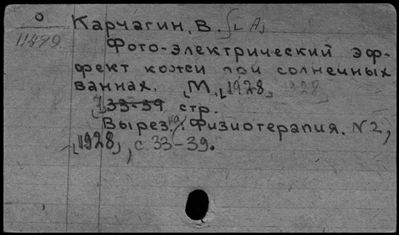 0
11479
Карчагин, В. [А.]
Фото-электрический эф-
фект кожи при солнечных
ваннах. [М., 1928, 1928]
33-39 стр.
Вырезка: Физиотерапия. N 2,
[1928], с 33-39.